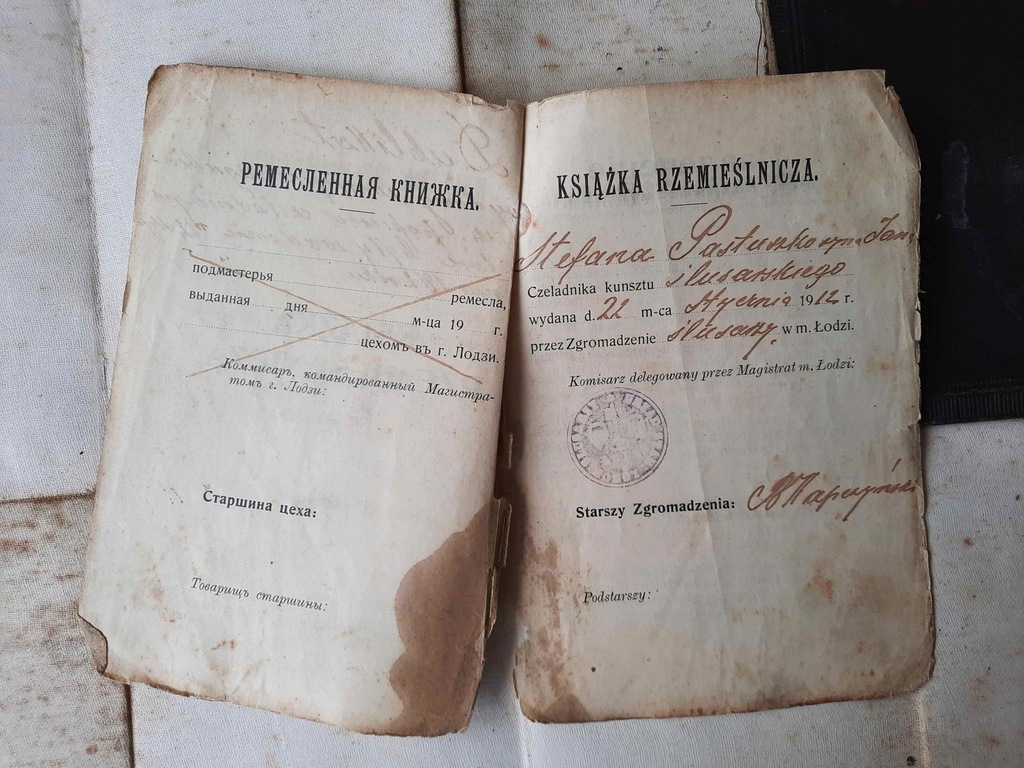 РЕМЕСЛЕННАЯ КНИЖКА.
подмастерья
ремесла,
выданная дня м-ца 19 г.
цехомъ въ г. Лодзи.
Коммисаръ, командированный Магистра-
томъ г. Лодзи:
Старшина цеха:
Товарищъ старшины:
KSIĄŻKA RZEMIEŚLNICZA.
Stefana Pastuszko syn. Jan
Czeladnika kunsztu ślusarskiego
wydana d. 22 m-ca Stycznia 1912 r.
przez Zgromadzenie ślusarzy w m. Łodzi.
Komisarz delegowany przez Magistrat m. Łodzi:
Starszy Zgromadzenia:
Podstarszy: